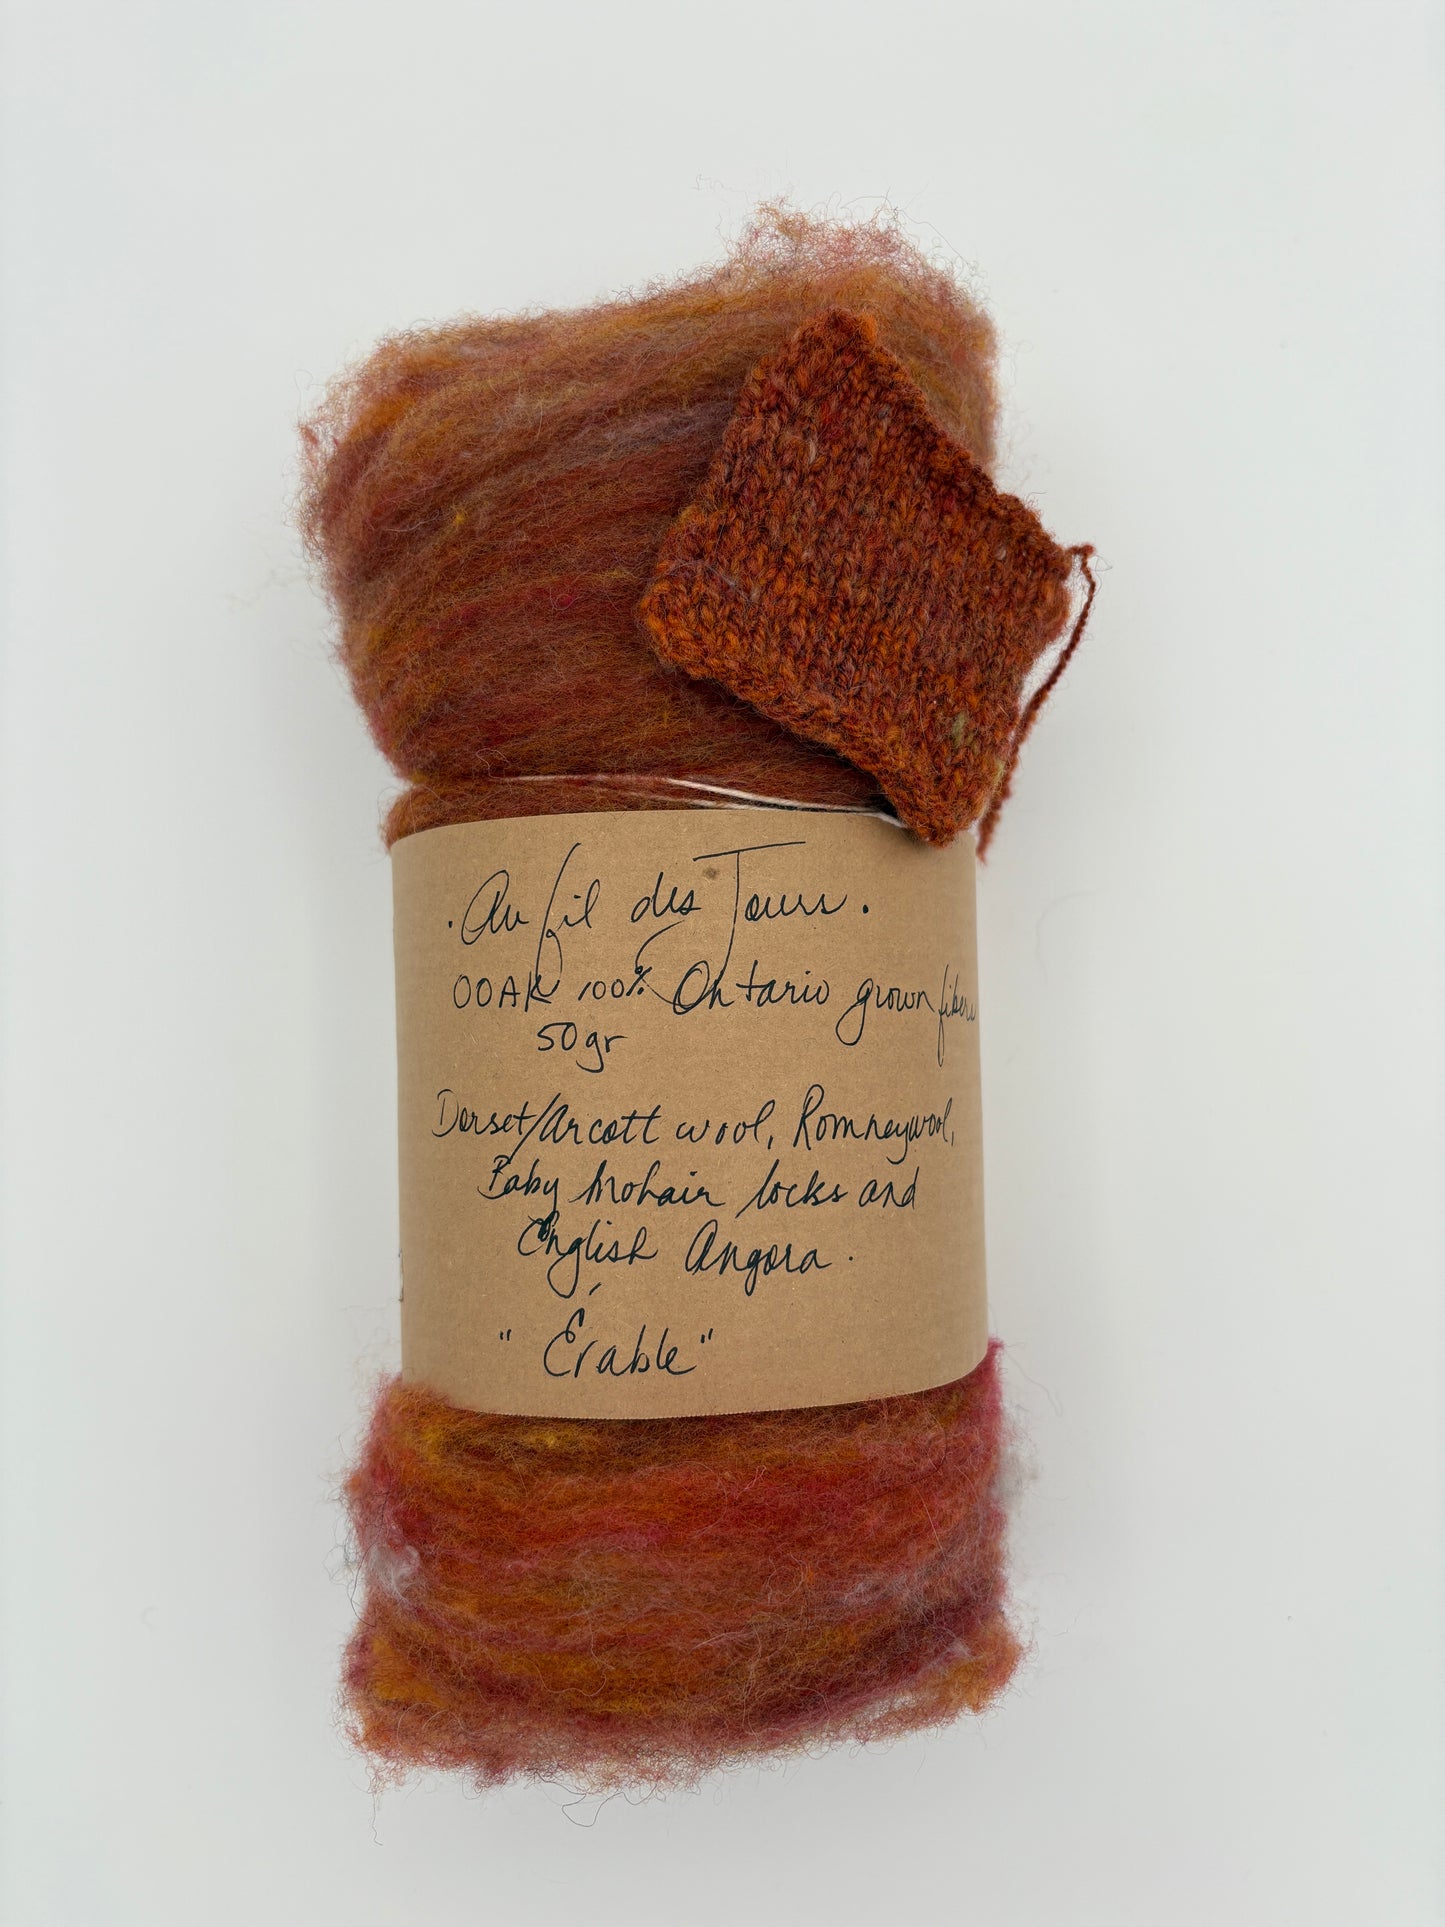 . Au fil des Jours .
OOAK 100% Ontario grown fibers
50gr
Dorset/Arcott wool, Romney wool,
Baby Mohair locks and
English Angora .
"Érable"